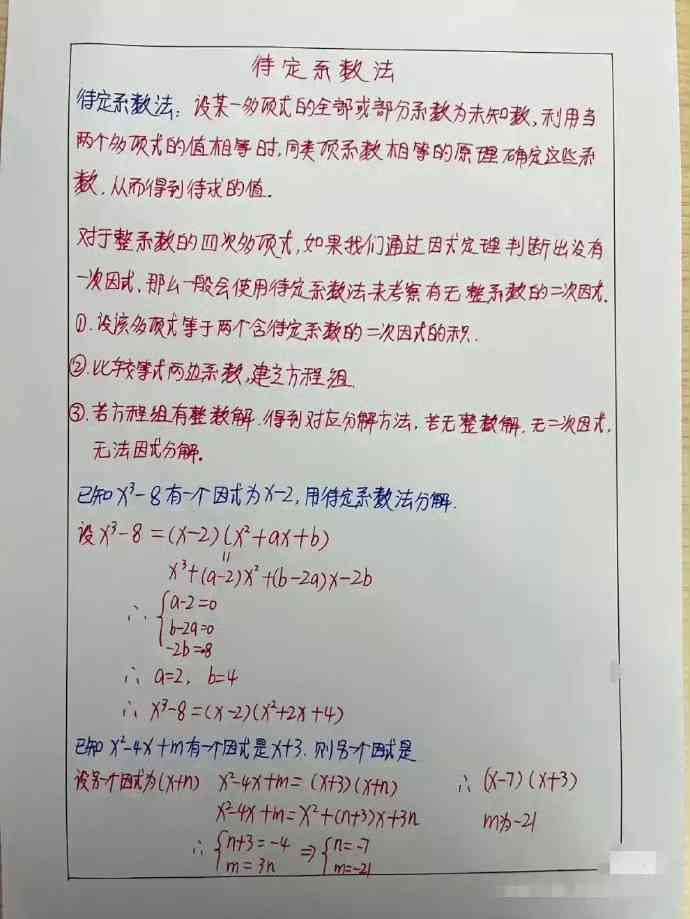 待定系数法
待定系数法：设某一多项式的全部或部分系数为未知数，利用当
两个多项式的值相等时，同类项系数相等的原理确定这些系
数，从而得到待求的值。
对于整系数的四次多项式，如果我们通过因式定理判断出没有
一次因式，那么一般会使用待定系数法来考察有无整系数的二次因式．
①．设该多项式等于两个含待定系数的二次因式的积．
②．比较等式两边系数，建立方程组．
③．若方程组有整数解．得到对应分解方法，若无整数解．无二次因式，
无法因式分解。
已知x³-8有一个因式为x-2，用待定系数法分解．
设x³-8=(x-2)(x²+ax+b)
=
x³+(a-2)x²+(b-2a)x-2b
∴ { a-2=0
b-2a=0
-2b=-8
∴ a=2，b=4
∴ x³-8=(x-2)(x²+2x+4)
已知x²-4x+m有一个因式是x+3．则另一个因式是
设另一个因式为(x+n) x²-4x+m=(x+3)(x+n) ∴ (x-7)(x+3)
x²-4x+m=x²+(n+3)x+3n m为-21
∴ { n+3=-4 ⇒ { n=-7
m=3n m=-21